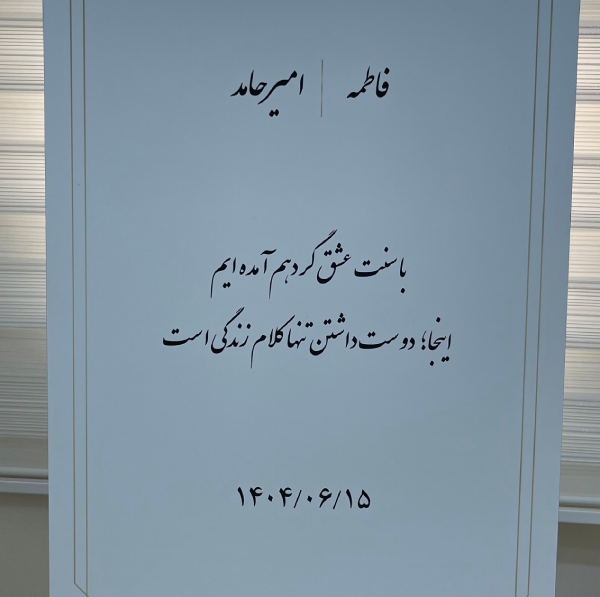 فاطمه | امیرحامد
با سنت عشق گرد هم آمده ایم
اینجا؛ دوست داشتن تنها کلام زندگی است
۱۴۰۴/۰۶/۱۵